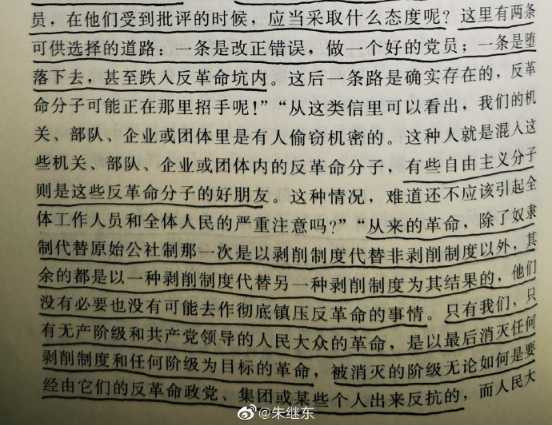 员，在他们受到批评的时候，应当采取什么态度呢？这里有两条
可供选择的道路：一条是改正错误，做一个好的党员；一条是堕
落下去，甚至跌入反革命坑内。这后一条路是确实存在的，反革
命分子可能正在那里招手呢！”“从这类信里可以看出，我们的机
关、部队、企业或团体里是有人偷窃机密的。这种人就是混入这
些机关、部队、企业或团体内的反革命分子，有些自由主义分子
则是这些反革命分子的好朋友。这种情况，难道还不应该引起全
体工作人员和全体人民的严重注意吗？”“从来的革命，除了奴隶
制代替原始公社制那一次是以剥削制度代替非剥削制度以外，其
余的都是以一种剥削制度代替另一种剥削制度为其结果的，他们
没有必要也没有可能去作彻底镇压反革命的事情。只有我们，只
有无产阶级和共产党领导的人民大众的革命，是以最后消灭任何
剥削制度和任何阶级为目标的革命，被消灭的阶级无论如何是要
经由它们的反革命政党、集团或某些个人出来反抗的，而人民大
@朱继东